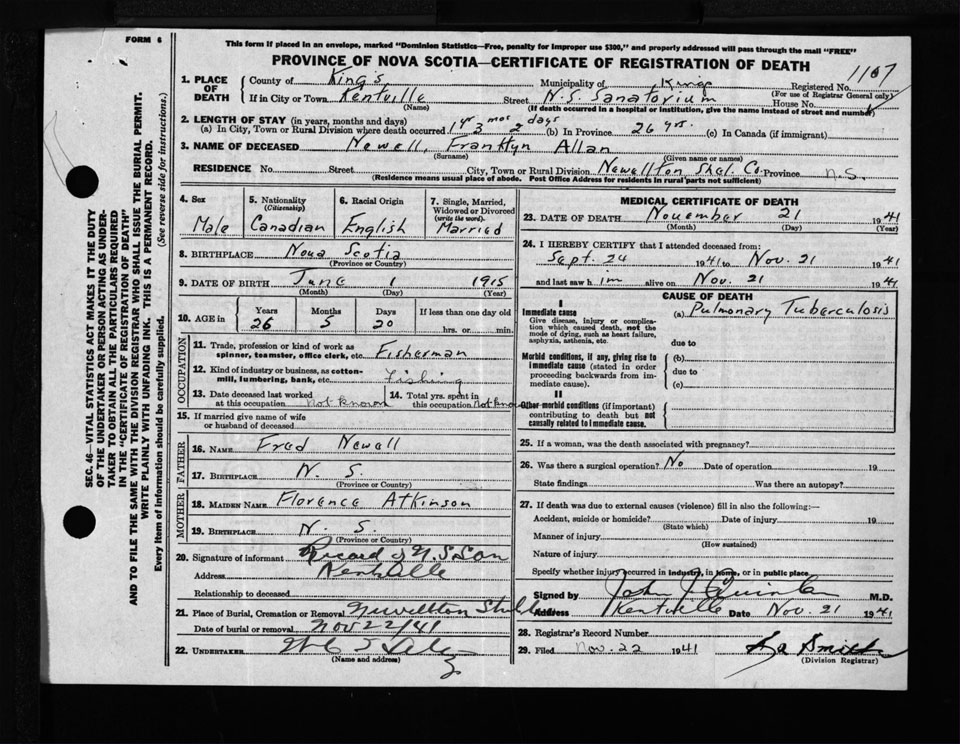 FORM 6
This form if placed in an envelope, marked "Dominion Statistics—Free, penalty for improper use $300," and properly addressed will pass through the mail "FREE"
PROVINCE OF NOVA SCOTIA—CERTIFICATE OF REGISTRATION OF DEATH
SEC. 46—VITAL STATISTICS ACT MAKES IT THE DUTY
OF THE UNDERTAKER OR PERSON ACTING AS UNDER-
TAKER TO OBTAIN ALL THE PARTICULARS REQUIRED
IN THE "CERTIFICATE OF REGISTRATION OF DEATH"
AND TO FILE THE SAME WITH THE DIVISION REGISTRAR WHO SHALL ISSUE THE BURIAL PERMIT.
WRITE PLAINLY WITH UNFADING INK. THIS IS A PERMANENT RECORD.
Every item of information should be carefully supplied. (See reverse side for instructions.)
1. PLACE OF DEATH County of King's Municipality of Kings Registered No. 1107
(For use of Registrar General only)
If in City or Town Kentville Street N.S. Sanatorium House No.
(Name) (If death occurred in a hospital or institution, give the name instead of street and number)
2. LENGTH OF STAY (in years, months and days)
(a) In City, Town or Rural Division where death occurred 1 yr 3 mos 2 days (b) In Province 26 yrs. (c) In Canada (if immigrant)
3. NAME OF DECEASED Newell, Franklyn Allan
(Surname) (Given name or names)
RESIDENCE No. Street City, Town or Rural Division Newellton Shel. Co. Province N.S.
(Residence means usual place of abode. Post Office Address for residents in rural parts not sufficient)
4. Sex 5. Nationality (Citizenship) 6. Racial Origin 7. Single, Married, Widowed or Divorced (write the word)
Male Canadian English Married
8. BIRTHPLACE Nova Scotia
(Province or Country)
9. DATE OF BIRTH June 1 1915
(Month) (Day) (Year)
10. AGE in Years Months Days If less than one day old
26 5 20 hrs. or min.
OCCUPATION
11. Trade, profession or kind of work as
spinner, teamster, office clerk, etc. Fisherman
12. Kind of industry or business, as cotton-
mill, lumbering, bank, etc. Fishing
13. Date deceased last worked at this occupation Not known 14. Total yrs. spent in this occupation Not know
15. If married give name of wife
or husband of deceased
FATHER
16. NAME Fred Newell
17. BIRTHPLACE N. S.
(Province or Country)
MOTHER
18. MAIDEN NAME Florence Atkinson
19. BIRTHPLACE N. S.
(Province or Country)
20. Signature of informant Record of N. S San
Address Kentville
Relationship to deceased
21. Place of Burial, Cremation or Removal Newellton
Date of burial or removal Nov 22/41
22. UNDERTAKER
(Name and address)
MEDICAL CERTIFICATE OF DEATH
23. DATE OF DEATH November 21 1941
(Month) (Day) (Year)
24. I HEREBY CERTIFY that I attended deceased from:
Sept. 24 1941 to Nov. 21 1941
and last saw him alive on Nov. 21 1941
CAUSE OF DEATH
I
Immediate cause (a) Pulmonary Tuberculosis
Give disease, injury or complica-
tion which caused death, not the
mode of dying, such as heart failure,
asphyxia, asthenia, etc. due to
Morbid conditions, if any, giving rise to
immediate cause (stated in order
proceeding backwards from im-
mediate cause). (b) due to (c)
II
Other morbid conditions (if important)
contributing to death but not
causally related to immediate cause.
25. If a woman, was the death associated with pregnancy?
26. Was there a surgical operation? No Date of operation 19
State findings Was there an autopsy?
27. If death was due to external causes (violence) fill in also the following:—
Accident, suicide or homicide? Date of injury 19
(State which)
Manner of injury
(How sustained)
Nature of injury
Specify whether injury occurred in industry, in home, or in public place
Signed by John J Quinlan M.D.
Address Kentville Date Nov. 21 1941
28. Registrar's Record Number
29. Filed Nov. 22 1941 Smith
(Division Registrar)